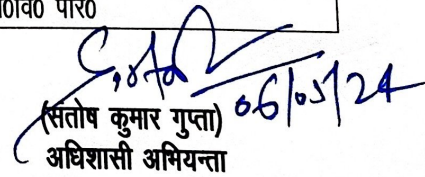 ०वि० पार०
06/05/24
(संतोष कुमार गुप्ता)
अधिशासी अभियन्ता